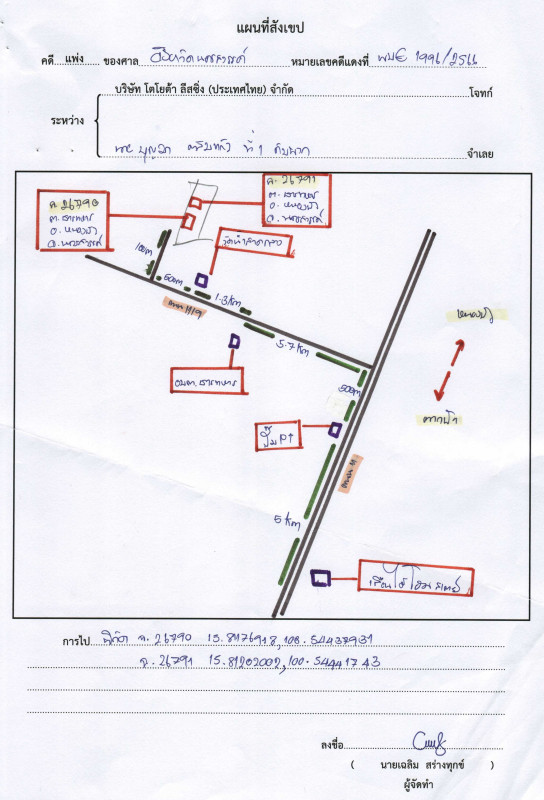 แผนที่สังเขป
คดี แพ่ง ของศาล จังหวัดนครสวรรค์ หมายเลขคดีแดงที่ ผบE 1991/2566
บริษัท โตโยต้า ลีสซิ่ง (ประเทศไทย) จำกัด โจทก์
ระหว่าง
ที่ 1 จำเลย
ฉ. 26790
ต. ธารทหาร
อ. หนองบัว
จ. นครสวรรค์
ฉ. 26791
ต. ธารทหาร
อ. หนองบัว
จ. นครสวรรค์
100m
600m
1.3 Km
ถนน 1119
5.7 Km
อบต. ธารทหาร
หนองบัว
ตากฟ้า
500m
ปั๊ม PT
ถนน 11
5 Km
การไป พิกัด ฉ. 26790 15.8176918, 100.54437931
ฉ. 26791 15.81202002, 100.54441743
ลงชื่อ
( นายเฉลิม สร่างทุกข์ )
ผู้จัดทำ